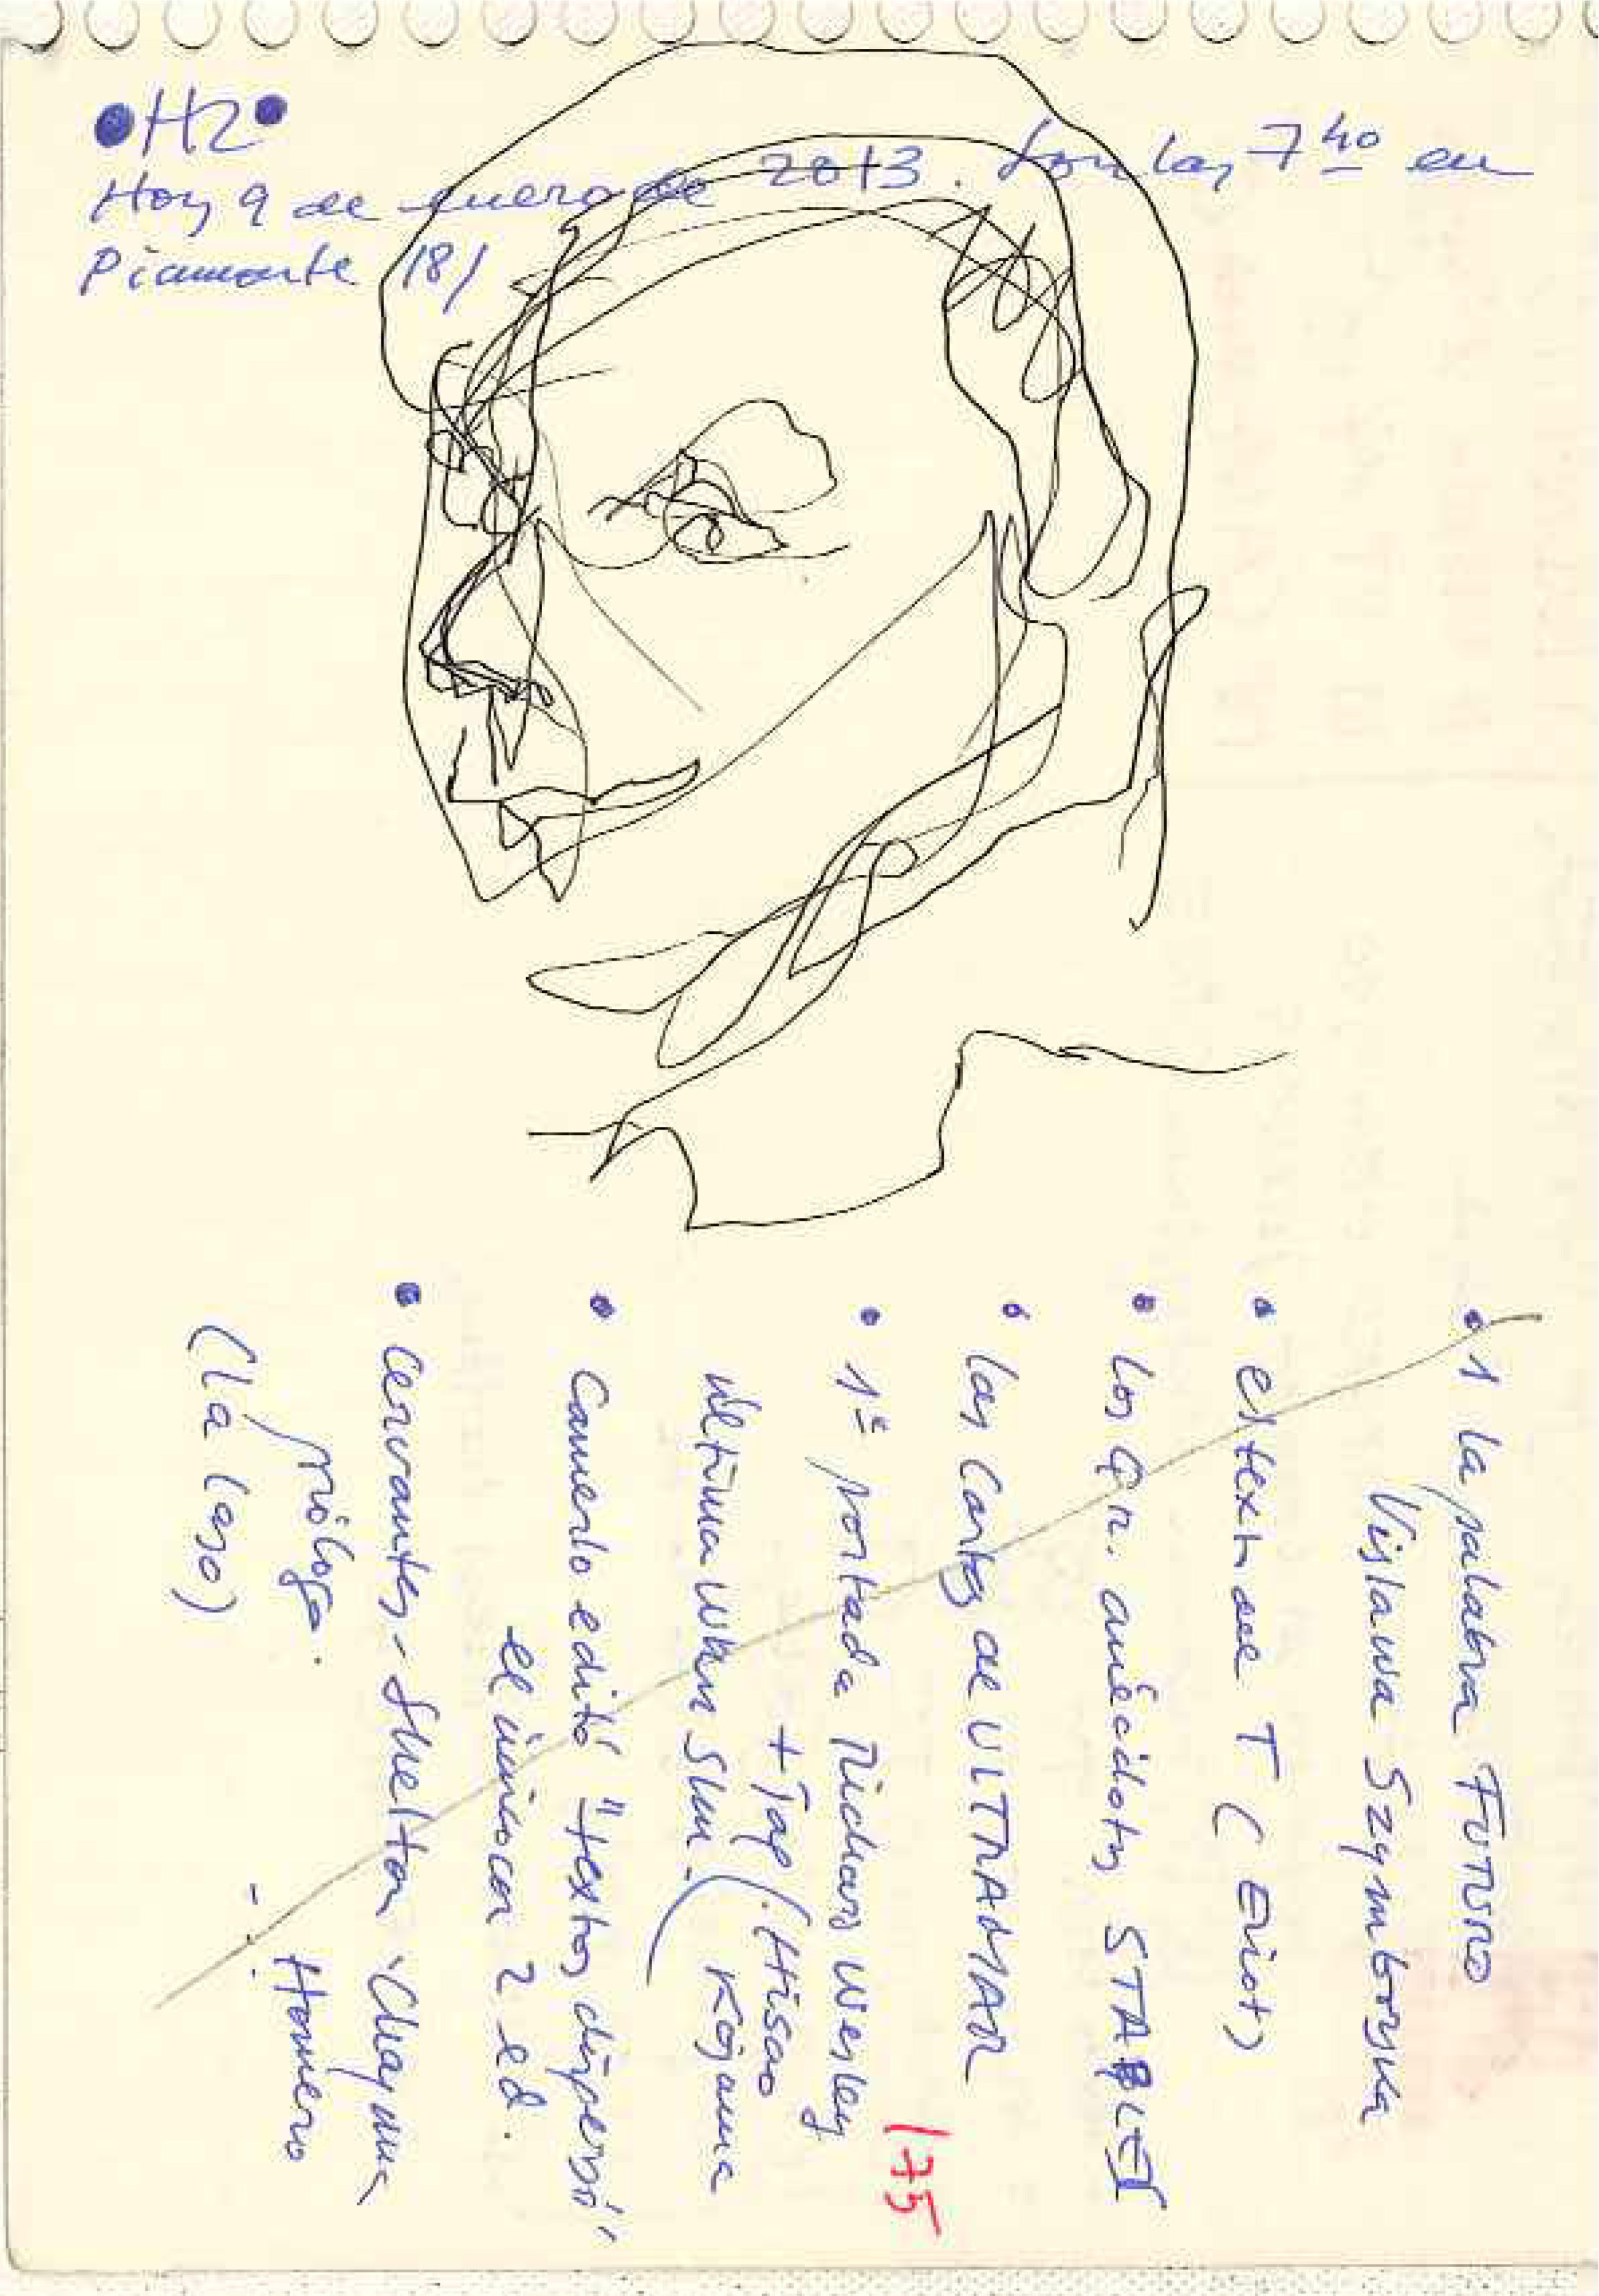 •H2•
Hoy 9 de enero de 2013. Son las 7 40 en
Piamonte 18/
• 1 la palabra FUTURO
Vislawa Szymborska
• el text de T (Eliot)
• los Gr. anécdotas STABLES
• las Cartas de ULTRAMAR
• 1ª portada Richard Wesley
+ Jap. (Hisao
última Wkn Skn. Kojama
• Camerlo editó "textos dispersos"
el único con 2 ed.
• Cervantes - Shelton · Chapman
prólogo. - Homero
(la laso)
175